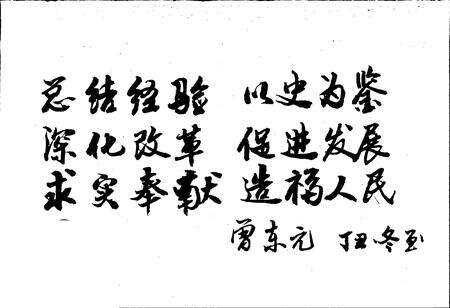 总结经验 以史为鉴
深化改革 促进发展
求实奉献 造福人民
曾东元 丁丑冬至